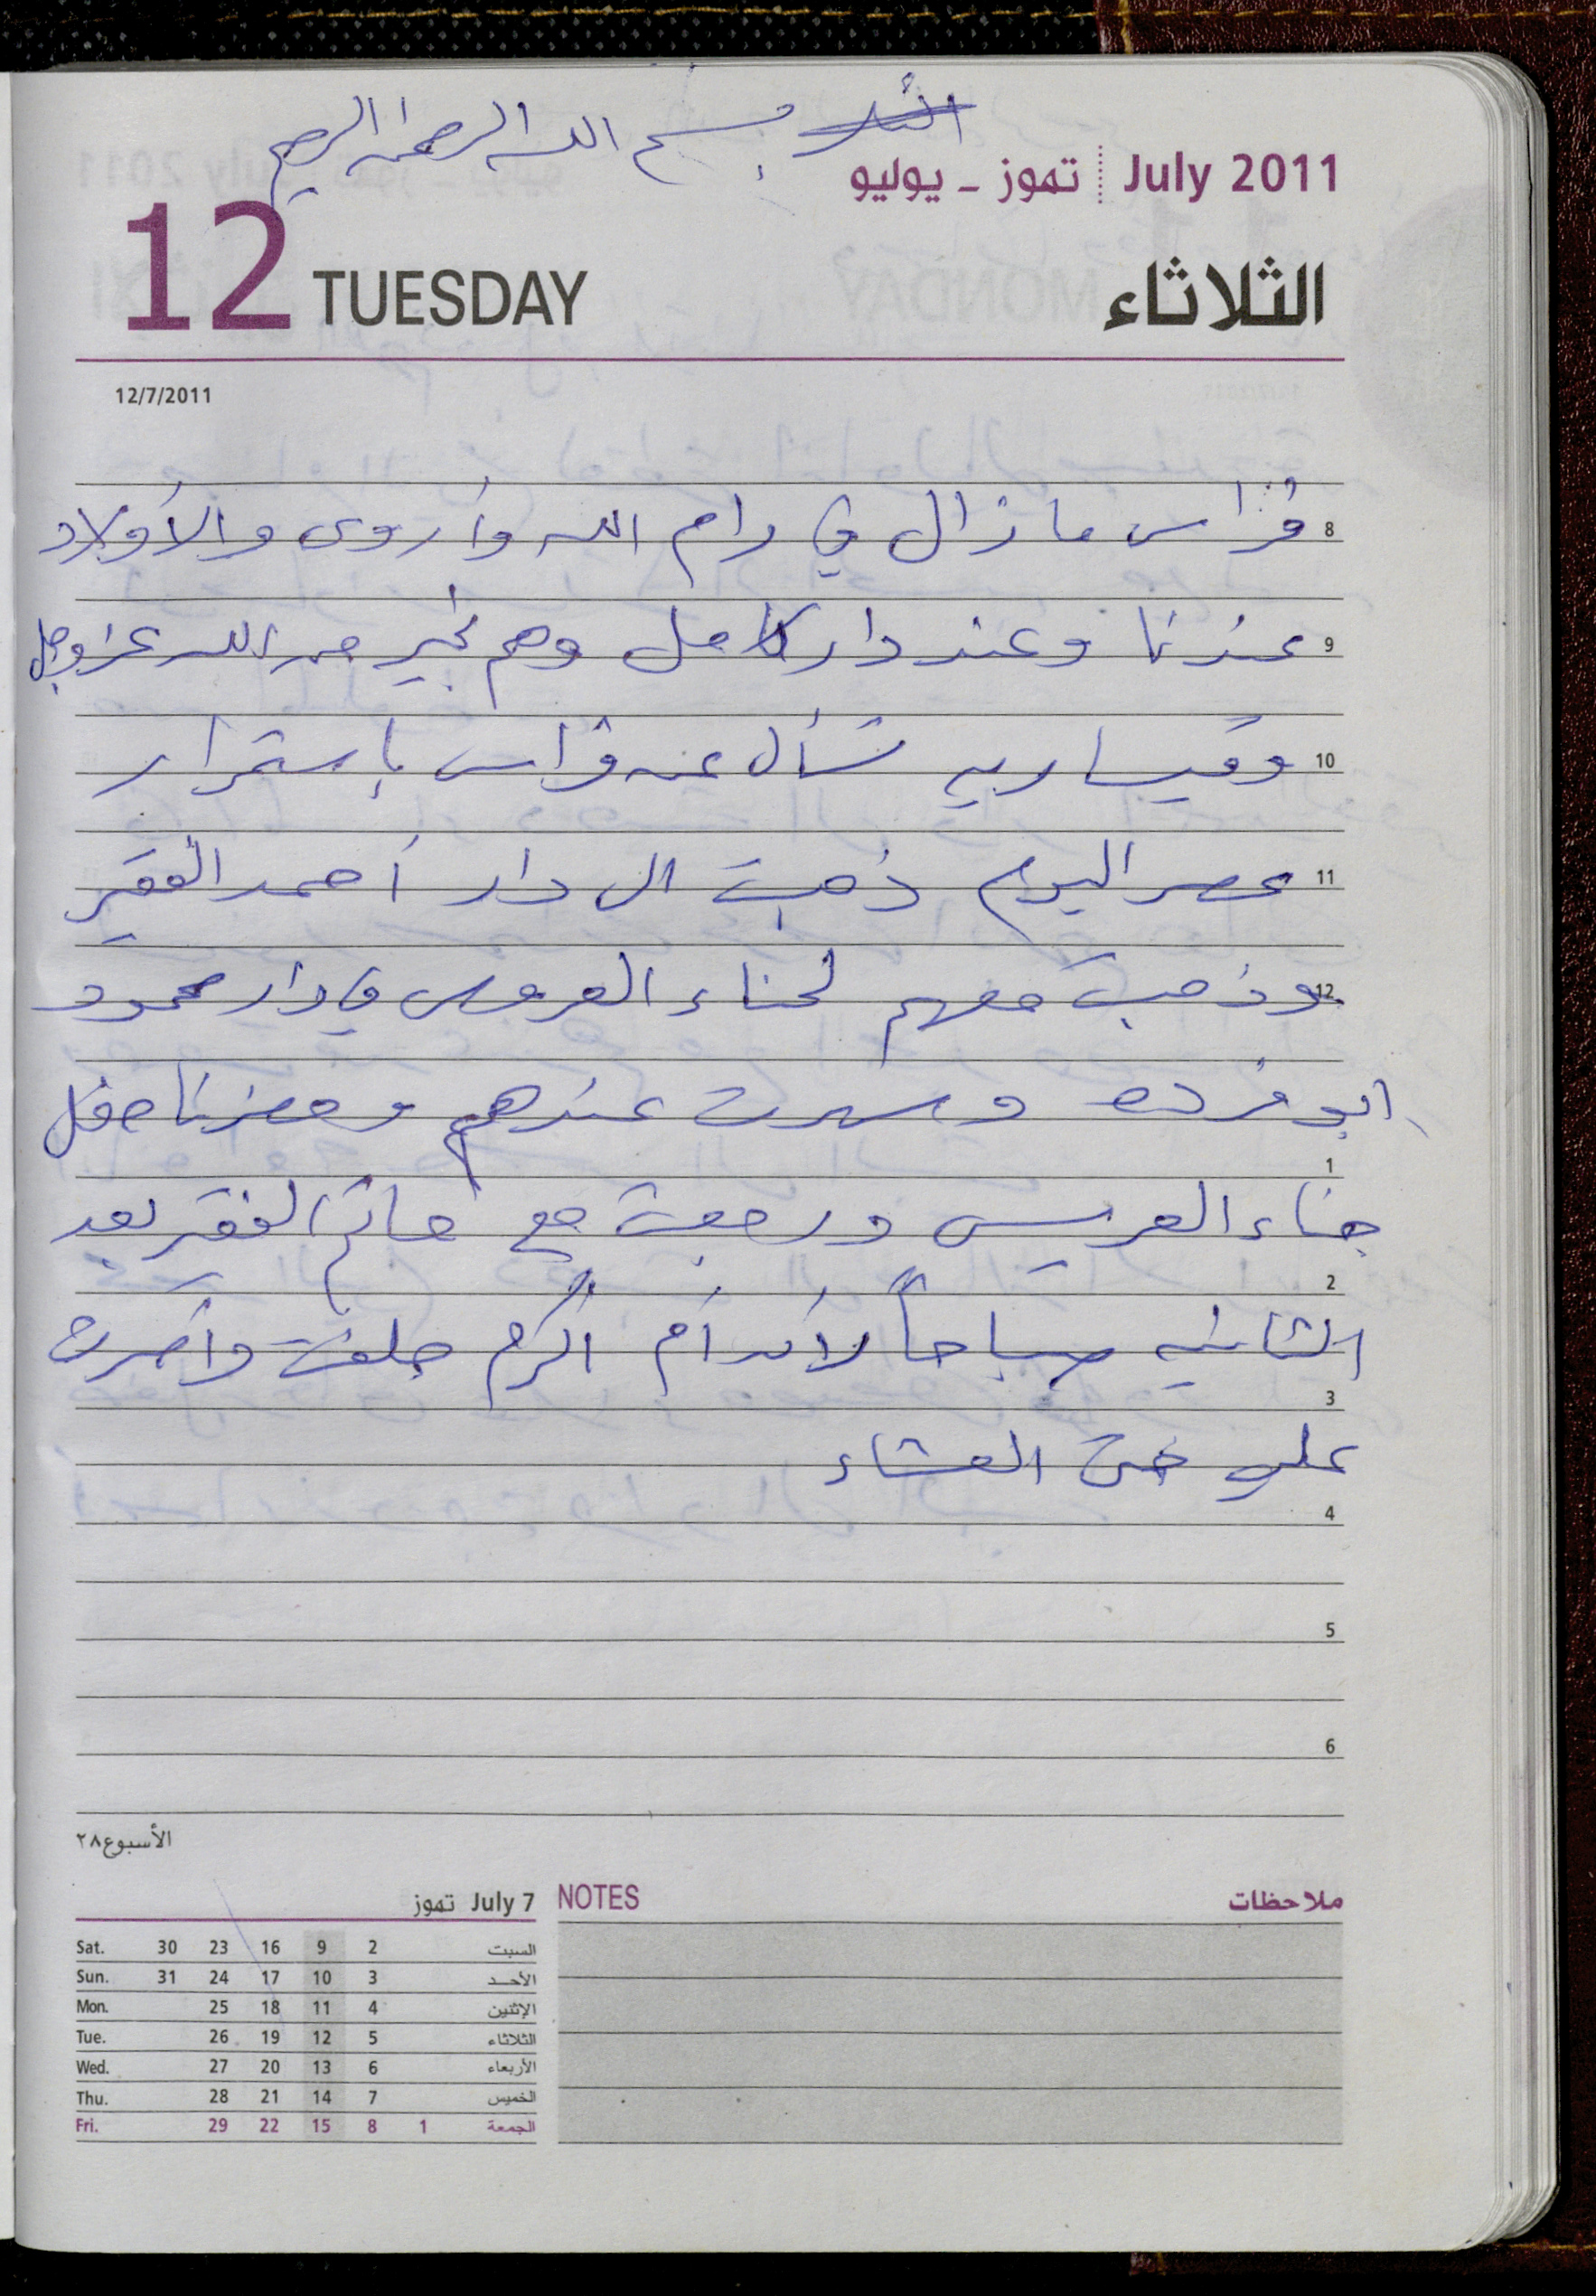 بسم الله الرحمن الرحيم
July 2011 تموز - يوليو
12 TUESDAY الثلاثاء
12/7/2011
8 فراس ما زال في رام الله وأروى والأولاد
9 عندنا وعند دار كامل وهم بخير من الله عز وجل
10 وقيساريه تسأل عن فراس بإستمرار
11 عصر اليوم ذهبت الى دار أحمد الفقير
12 وذهبت معهم لحناء العروس في دار محمود
ابو فرده وسهرت عندهم وحضرنا حفل
1
حناء العريس ورجعت مع حاتم الفقير بعد
2
الثانيه صباحاً لأن أم أكرم حلفت وأصرت
3
علي العشاء
4
5
6
الأسبوع ٢٨
July 7 تموز
NOTES ملاحظات
Sat. 30 23 16 9 2 السبت
Sun. 31 24 17 10 3 الأحد
Mon. 25 18 11 4 الإثنين
Tue. 26 19 12 5 الثلاثاء
Wed. 27 20 13 6 الأربعاء
Thu. 28 21 14 7 الخميس
Fri. 29 22 15 8 1 الجمعة